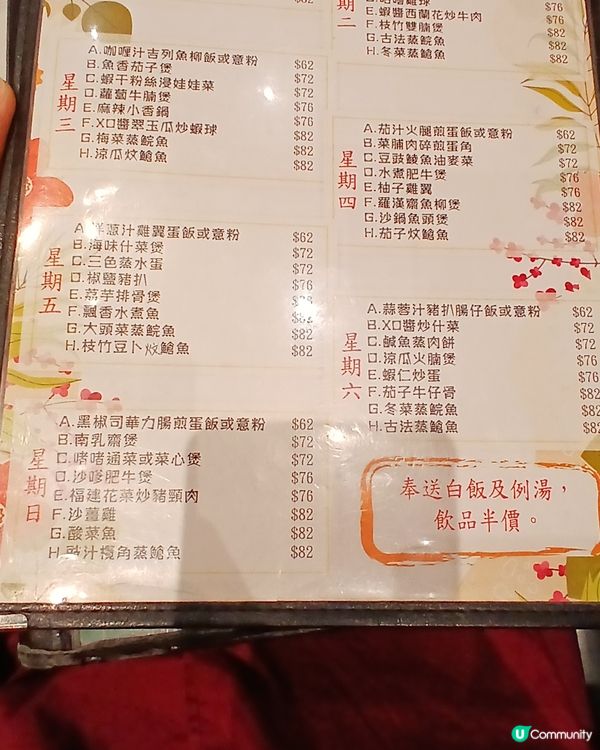 星期三
A.咖喱汁吉列魚柳飯或意粉 $62
B.魚香茄子煲 $72
C.蝦干粉絲浸娃娃菜 $72
D.蘿蔔牛腩煲 $76
E.麻辣小香鍋 $76
F.XO醬翠玉瓜炒蝦球 $76
G.梅菜蒸鯇魚 $82
H.涼瓜炆鯰魚 $82
星期五
A.洋蔥汁雞翼蛋飯或意粉 $62
B.海味什菜煲 $72
C.三色蒸水蛋 $72
D.椒鹽豬扒
E.荔芋排骨煲
F.飄香水煮魚
G.大頭菜蒸鯇魚 $82
H.枝竹豆卜炆鯰魚 $82
星期日
A.黑椒司華力腸煎蛋飯或意粉 $62
B.南乳齋煲 $72
C.啫啫通菜或菜心煲 $72
D.沙嗲肥牛煲 $76
E.福建花菜炒豬頸肉 $76
F.沙薑雞 $82
G.酸菜魚 $82
H.豉汁欖角蒸鯰魚 $82
期二
$76
E.蝦醬西蘭花炒牛肉 $76
F.枝竹雙腩煲 $82
G.古法蒸鯇魚 $82
H.冬菜蒸鯰魚 $82
星期四
A.茄汁火腿煎蛋飯或意粉 $62
B.菜脯肉碎煎蛋角 $72
C.豆豉鯪魚油麥菜 $72
D.水煮肥牛煲 $76
E.柚子雞翼 $76
F.羅漢齋魚柳煲 $82
G.沙鍋魚頭煲 $82
H.茄子炆鯰魚 $82
星期六
A.蒜蓉汁豬扒腸仔飯或意粉 $62
B.XO醬炒什菜 $72
C.鹹魚蒸肉餅 $72
D.涼瓜火腩煲 $76
E.蝦仁炒蛋 $76
F.茄子牛仔骨
G.冬菜蒸鯇魚
H.古法蒸鯰魚
奉送白飯及例湯，
飲品半價。
U Community